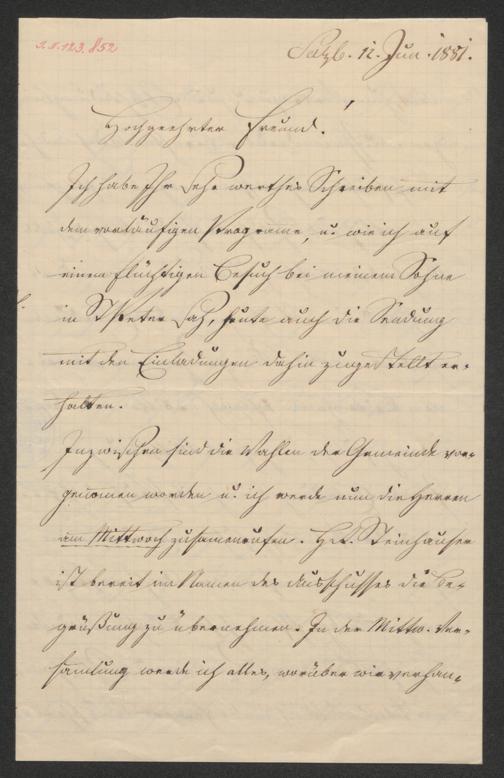 I.N. 123.852
Salzb. 12. Jun. 1881.
Hochgeehrter Freund!
Ich habe Ihr sehr werthes Schreiben mit
dem vorläufigen Programe, u. wie ich auf
einen flüchtigen Besuch bei meinem Sohne
in St Peter sah, heute auch die Sendung
mit den Einladungen dahin zugestellt er-
halten.
Inzwischen sind die Wahlen der Gemeinde vor-
genomen worden u. ich werde nun die Herren
am Mittwoch zusamenrufen. H. Steinhauser
ist bereit im Namen des Ausschusses die Be-
grüßung zu übernehmen. In der Mittw. Ver-
samlung werde ich alles, worüber wir verhan-